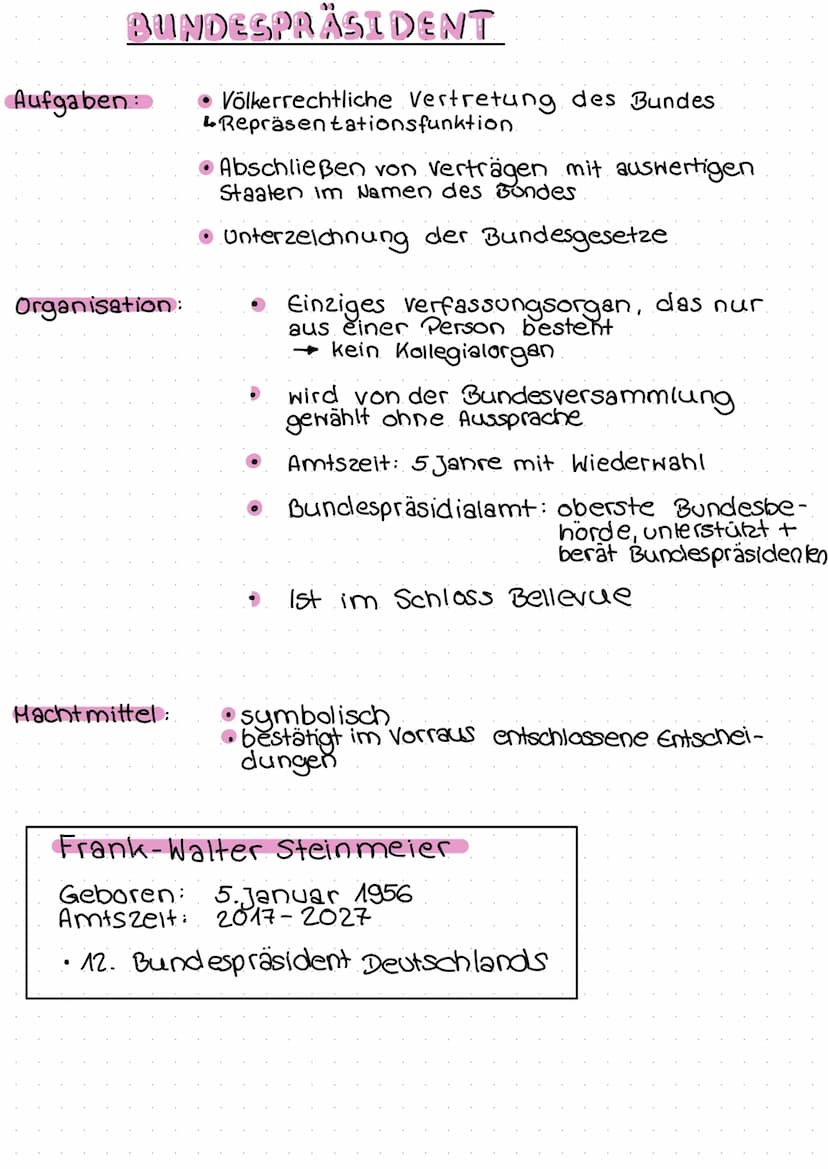 BUNDESPRÄSIDENT
Aufgaben:
• Völkerrechtliche Vertretung des Bundes
↳ Repräsentationsfunktion
• Abschließen von Verträgen mit auswertigen
Staaten im Namen des Bundes
• Unterzeichnung der Bundesgesetze
Organisation:
• Einziges Verfassungsorgan, das nur
aus einer Person besteht
→ kein Kollegialorgan
• wird von der Bundesversammlung
gewählt ohne Aussprache
• Amtszeit: 5 Jahre mit Wiederwahl
• Bundespräsidialamt: oberste Bundesbe-
hörde, unterstützt +
berät Bundespräsidenten
• Ist im Schloss Bellevue
Machtmittel:
• symbolisch
• bestätigt im Vorraus entschlossene Entschei-
dungen
Frank-Walter Steinmeier
Geboren: 5. Januar 1956
Amtszeit: 2017-2027
• 12. Bundespräsident Deutschlands